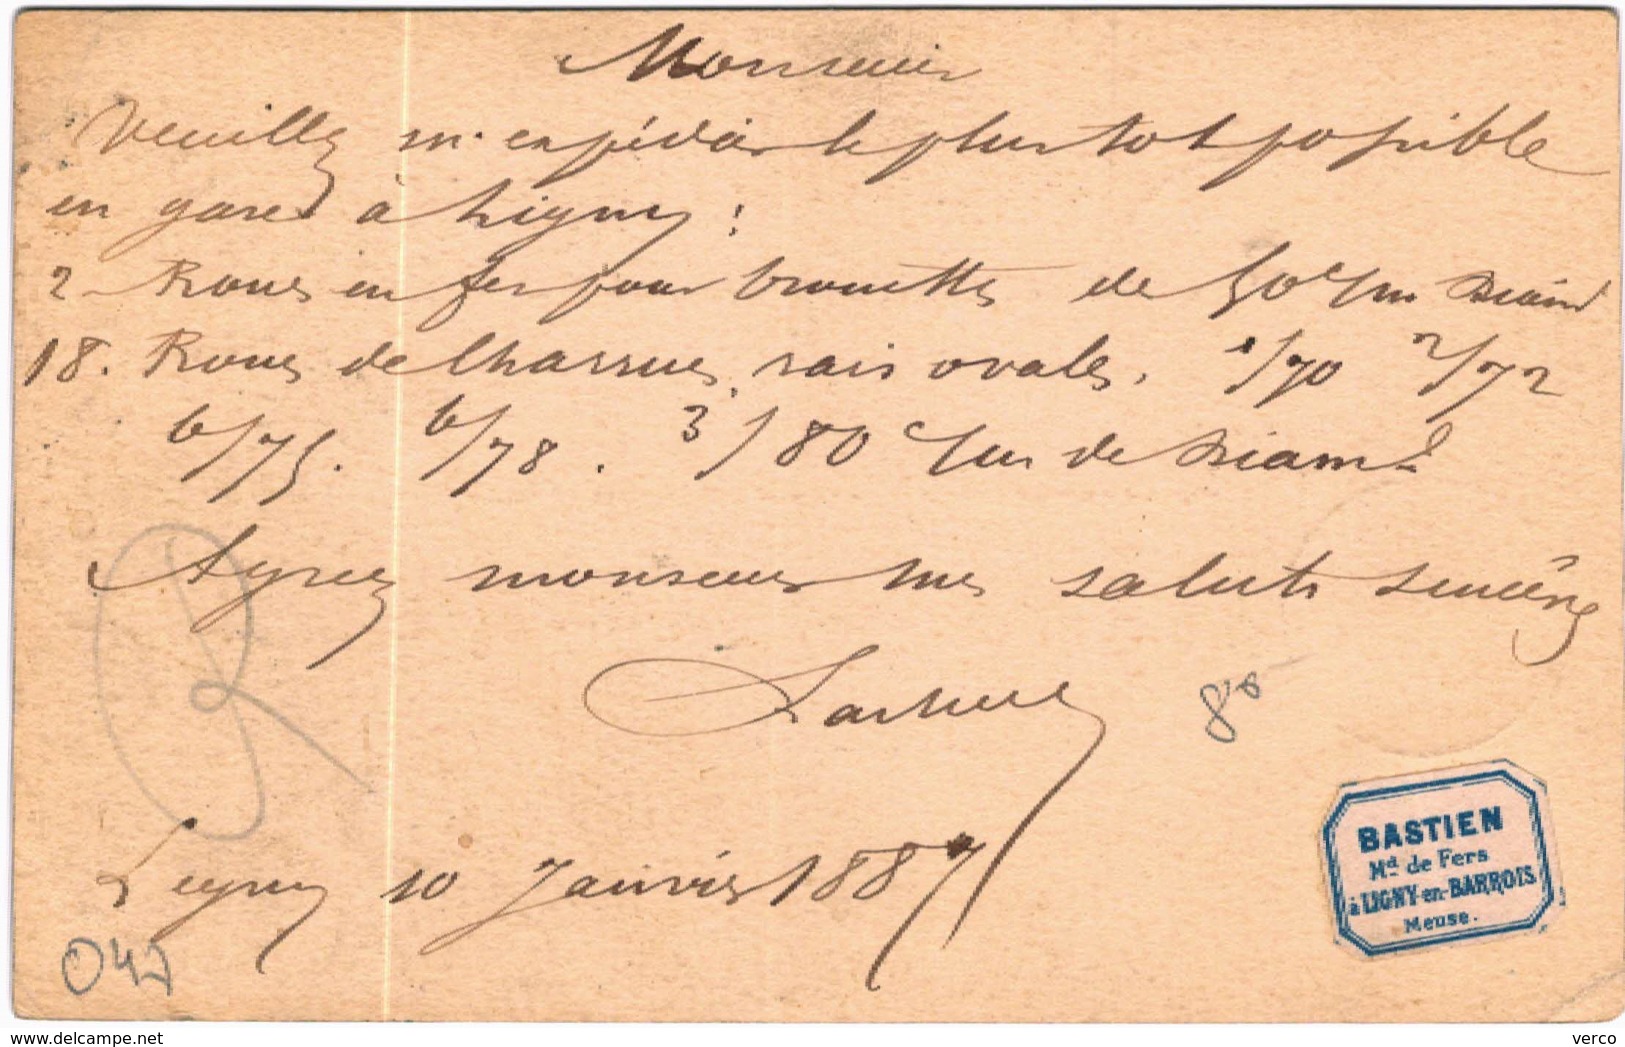 Monsieur
Veuillez m'expédier le plus tot possible
en gare à Ligny :
2 Roues en fer pour brouettes de 50 c/m Diam
18. Roues de Charrues, rais ovales. 1/70 2/72
6/75. 6/78. 3/80 c/m de Diam
Agréez monsieur mes saluts sincères
Ligny 10 Janvier 1887
BASTIEN
Md de Fers
à LIGNY-en-BARROIS
Meuse.
047
delcampe.net
verco